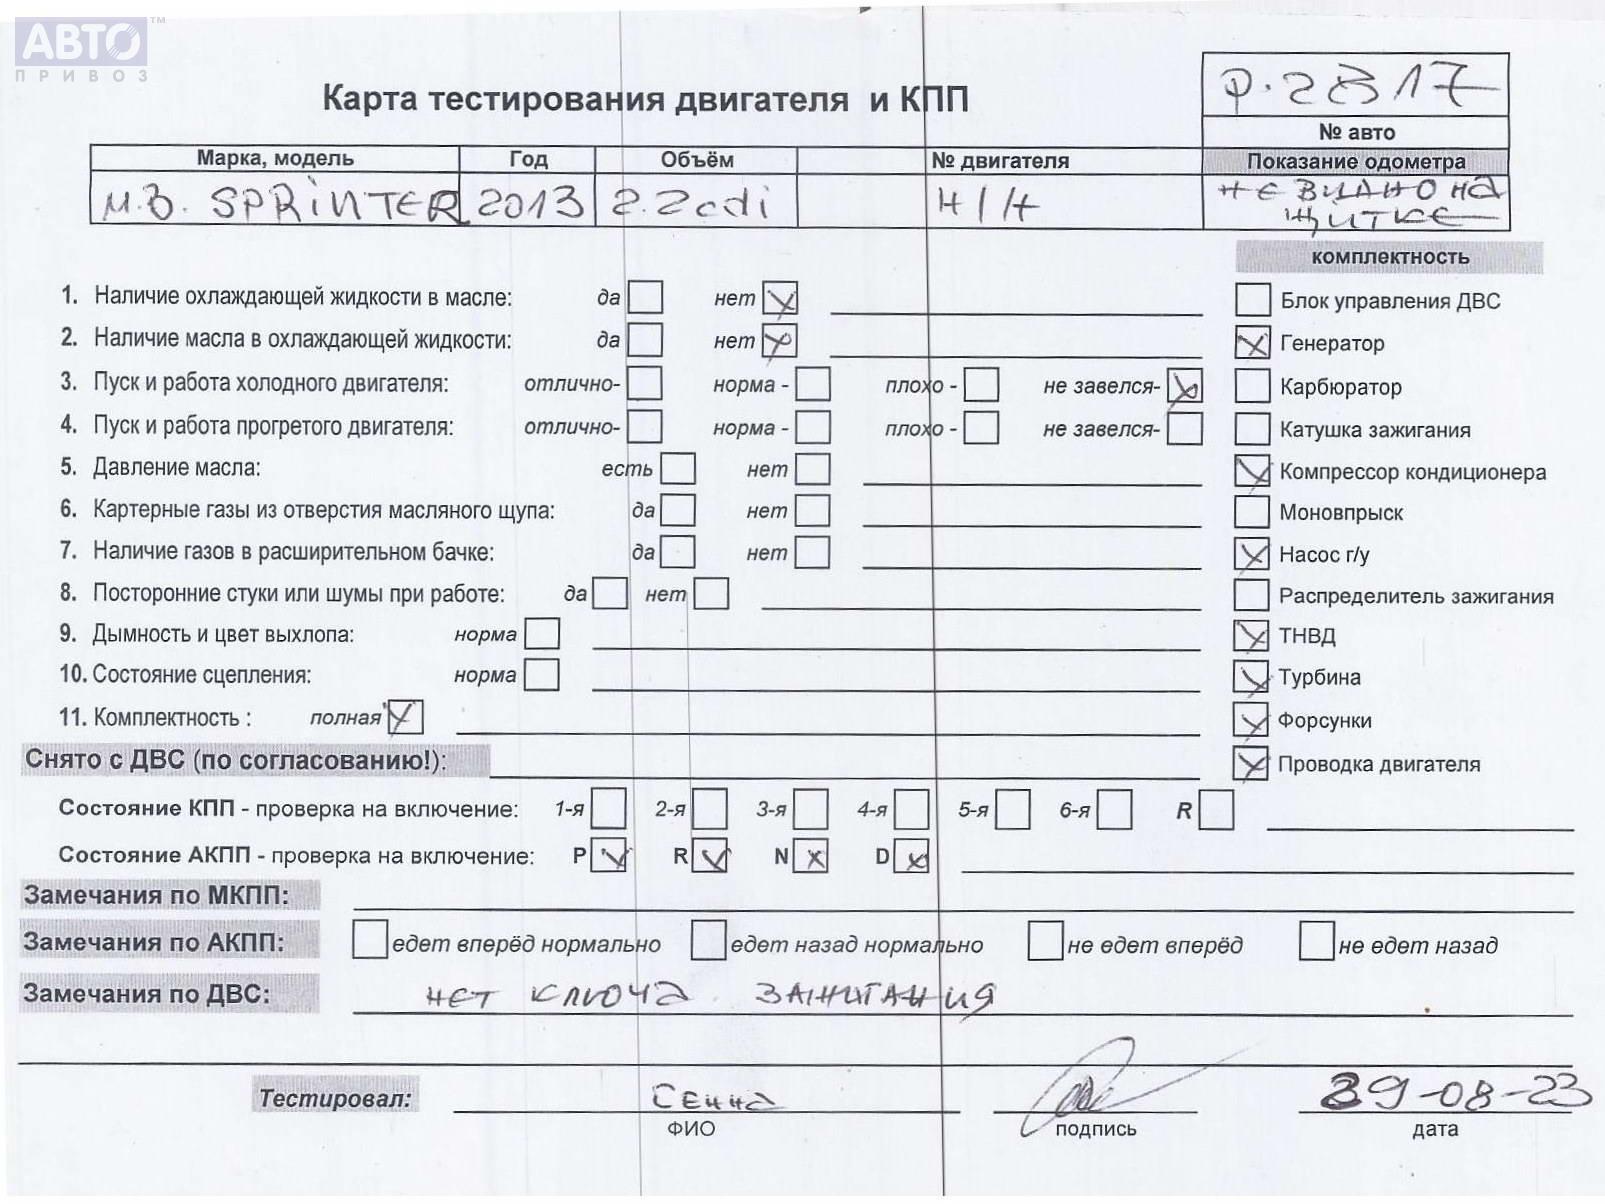 АВТО™
ПРИВОЗ
Карта тестирования двигателя и КПП
р.2817
№ авто
Марка, модель Год Объём № двигателя Показание одометра
M.B. SPRINTER 2013 2.2cdi Н/Н не видно на
щитке
комплектность
1. Наличие охлаждающей жидкости в масле: да нет
Блок управления ДВС
2. Наличие масла в охлаждающей жидкости: да нет
Генератор
3. Пуск и работа холодного двигателя: отлично- норма - плохо - не завелся-
Карбюратор
4. Пуск и работа прогретого двигателя: отлично- норма - плохо - не завелся-
Катушка зажигания
5. Давление масла: есть нет
Компрессор кондиционера
6. Картерные газы из отверстия масляного щупа: да нет
Моновпрыск
7. Наличие газов в расширительном бачке: да нет
Насос г/у
8. Посторонние стуки или шумы при работе: да нет
Распределитель зажигания
9. Дымность и цвет выхлопа: норма
ТНВД
10. Состояние сцепления: норма
Турбина
11. Комплектность : полная
Форсунки
Снято с ДВС (по согласованию!):
Проводка двигателя
Состояние КПП - проверка на включение: 1-я 2-я 3-я 4-я 5-я 6-я R
Состояние АКПП - проверка на включение: P R N D
Замечания по МКПП:
Замечания по АКПП: едет вперёд нормально едет назад нормально не едет вперёд не едет назад
Замечания по ДВС: нет ключа зажигания
Тестировал: Сенна 29-08-23
ФИО подпись дата